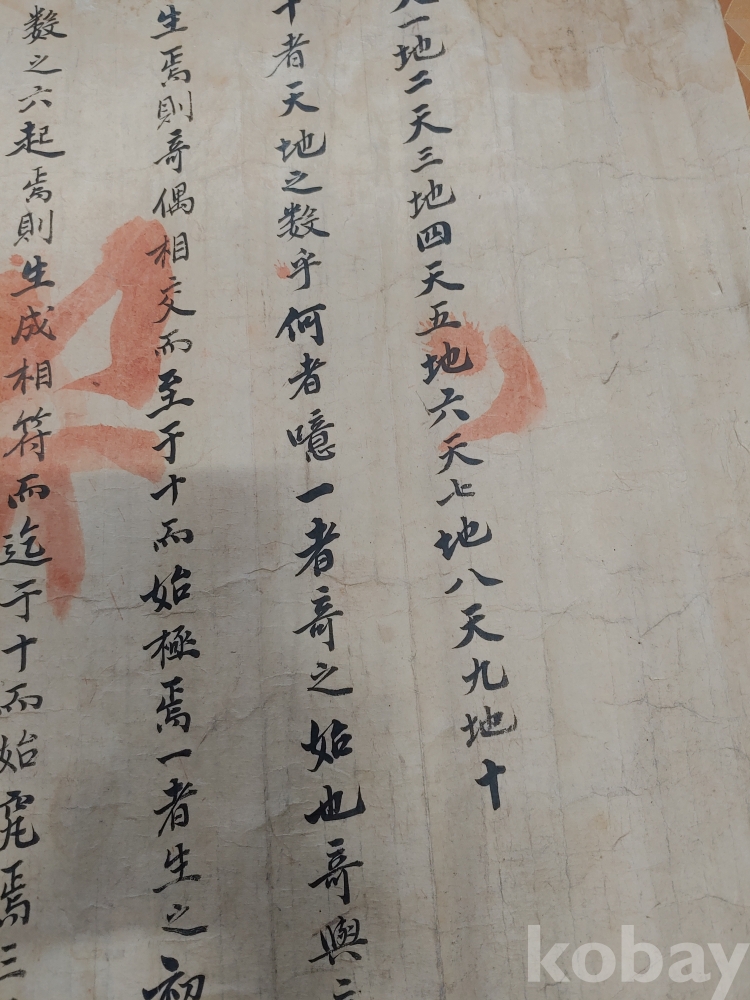 一地二天三地四天五地六天七地八天九地十
十者天地之数乎何者噫一者奇之始也奇與二
生焉則奇偶相交而至于十而始極焉一者生之初
数之六起焉則生成相符而迄于十而始焉三
kobay